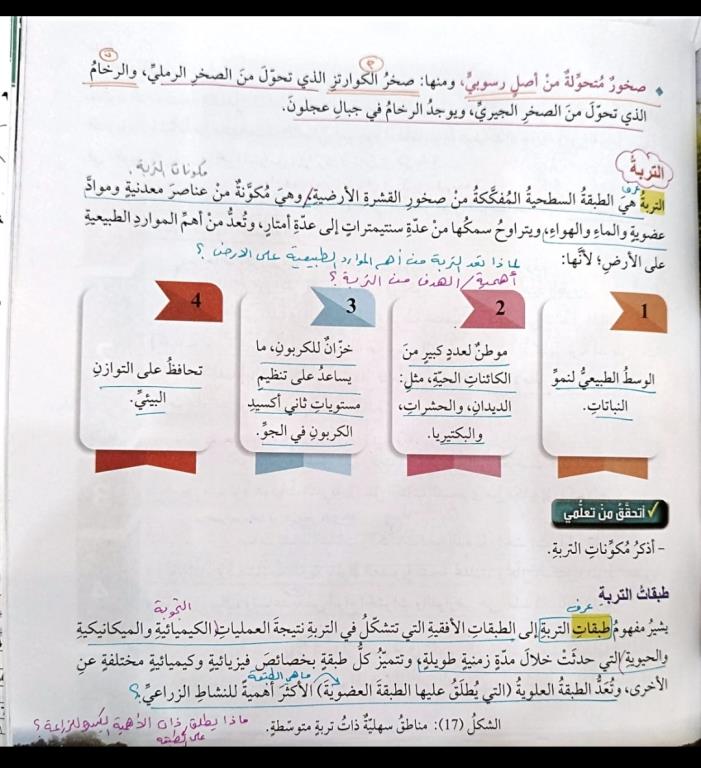 صخورٌ مُتحوّلةٌ منْ أصلٍ رسوبيٍّ، ومنها: صخرُ الكوارتزِ الذي تحوّلَ منَ الصخرِ الرمليِّ، والرخامُ
الذي تحوّلَ منَ الصخرِ الجيريِّ، ويوجدُ الرخامُ في جبالِ عجلونَ.
التربةُ
مكونات التربة.
عرف
التربةُ هيَ الطبقةُ السطحيةُ المُفكَّكةُ منْ صخورِ القشرةِ الأرضيةِ، وهيَ مكوَّنةٌ منْ عناصرَ معدنيةٍ وموادَّ
عضويةٍ والماءِ والهواءِ، ويتراوحُ سمكُها منْ عدّةِ سنتيمتراتٍ إلى عدّةِ أمتارٍ، وتُعدُّ منْ أهمِّ المواردِ الطبيعيةِ
على الأرضِ؛ لأنَّها:
لماذا تعد التربة من أهم الموارد الطبيعية على الارض ؟
أهمية / الهدف من التربة ؟
1
الوسطُ الطبيعيُّ لنموِّ
النباتاتِ.
2
موطنٌ لعددٍ كبيرٍ منَ
الكائناتِ الحيّةِ، مثلِ:
الديدانِ، والحشراتِ،
والبكتيريا.
3
خزّانٌ للكربونِ، ما
يساعدُ على تنظيمِ
مستوياتِ ثاني أكسيدِ
الكربونِ في الجوِّ.
4
تحافظُ على التوازنِ
البيئيِّ.
أتحقَّقُ منْ تعلُّمي
- أذكرُ مُكوِّناتِ التربةِ.
طبقاتُ التربةِ
عرف
يشيرُ مفهومُ طبقاتِ التربةِ إلى الطبقاتِ الأفقيةِ التي تتشكّلُ في التربةِ نتيجةَ العملياتِ الكيميائيةِ والميكانيكيةِ
والحيويةِ التي حدثَتْ خلالَ مدّةٍ زمنيةٍ طويلةٍ، وتتميّزُ كلُّ طبقةٍ بخصائصَ فيزيائيةٍ وكيميائيةٍ مختلفةٍ عنِ
ماهي الطبقة
الأخرى، وتُعَدُّ الطبقةُ العلويةُ (التي يُطلَقُ عليها الطبقةُ العضويةُ) الأكثرَ أهميةً للنشاطِ الزراعيِّ. ؟
الشكلُ (17): مناطقُ سهليّةٌ ذاتُ تربةٍ متوسّطةٍ.
ماذا يطلق ذات الأهمية الكبيرة للزراعة ؟
على الطبقه